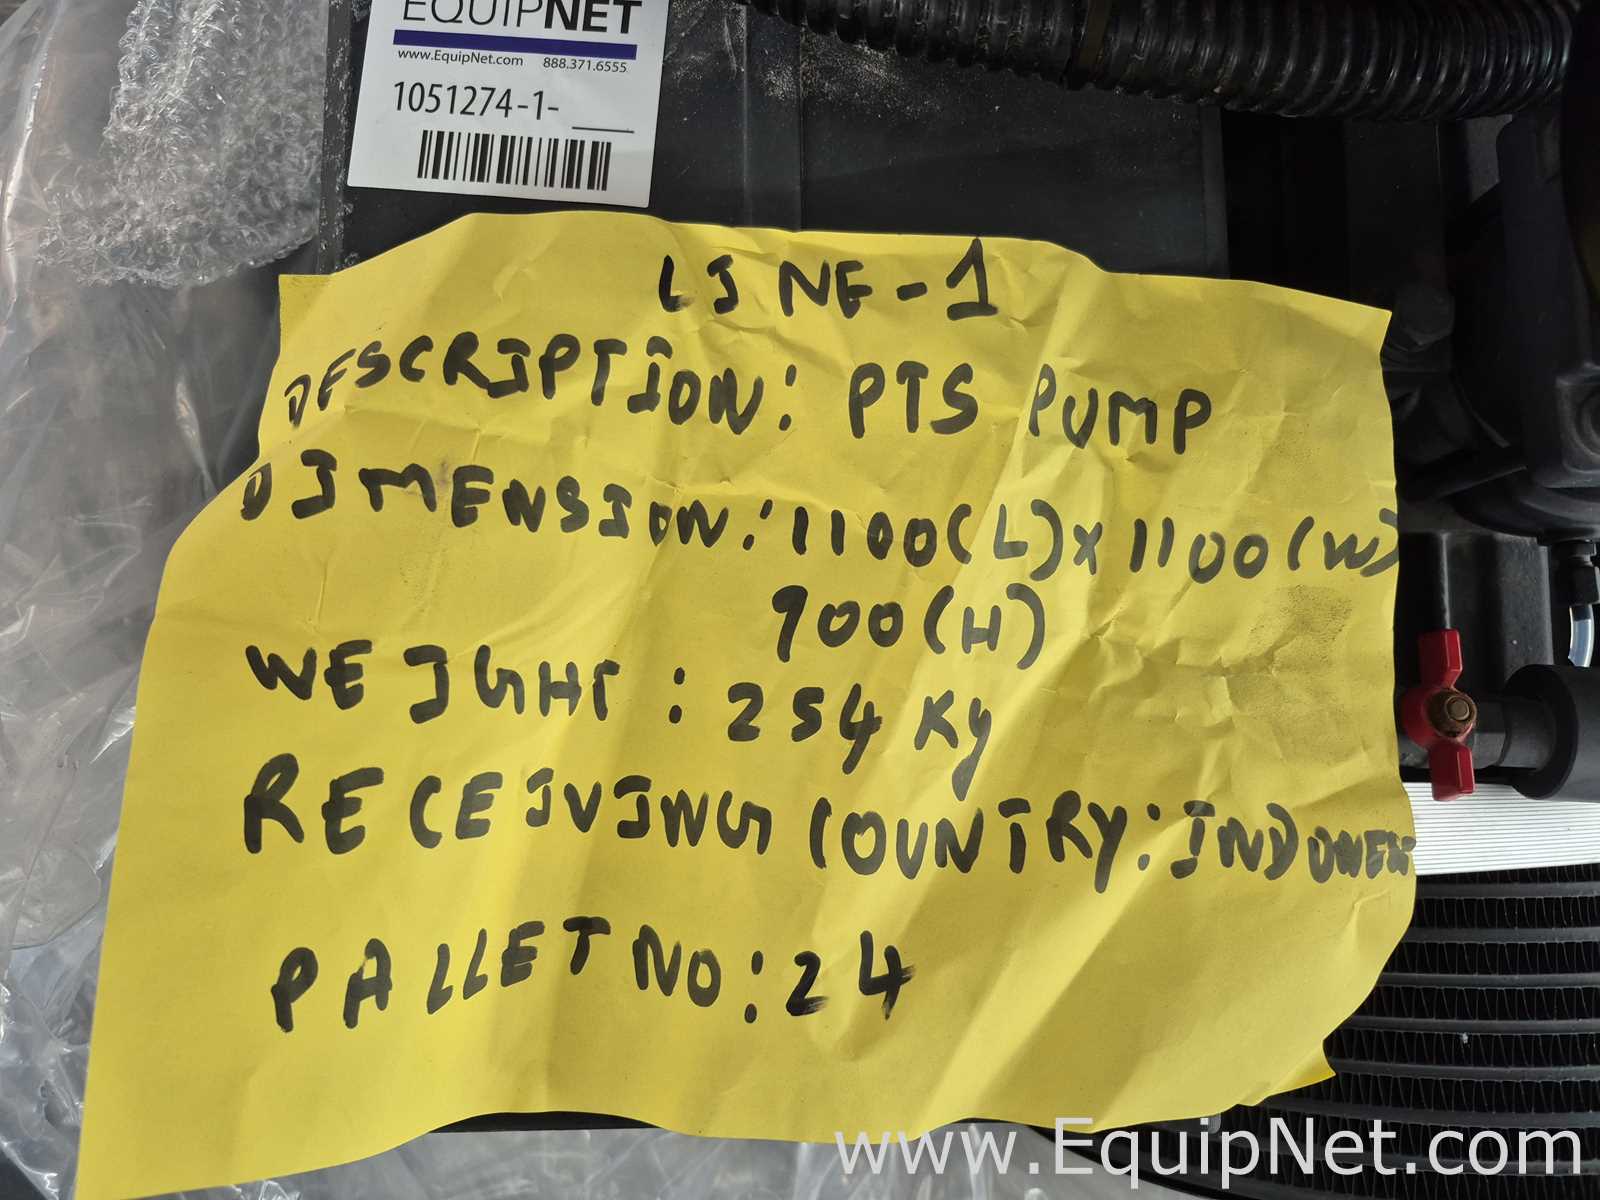 EQUIPNET
www.EquipNet.com 888.371.6555
1051274-1-
LINE-1
DESCRIPTION: PTS PUMP
DIMENSION: 1100(L)x1100(W)
900(H)
WEIGHT: 254 Kg
RECEIVING COUNTRY:
PALLET NO: 24
www.EquipNet.com